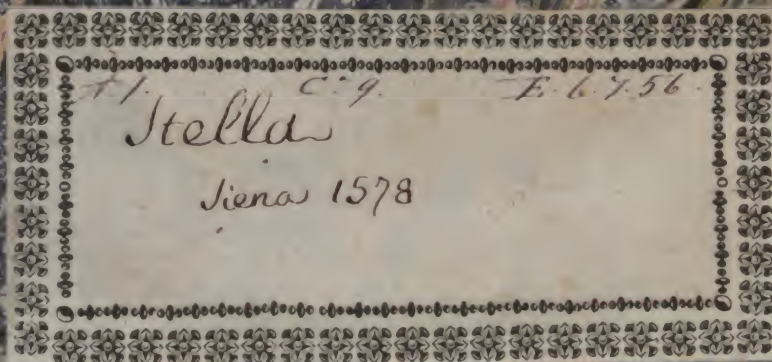 C. 9. E. 6. 7. 56.
Stella
Siena 1578